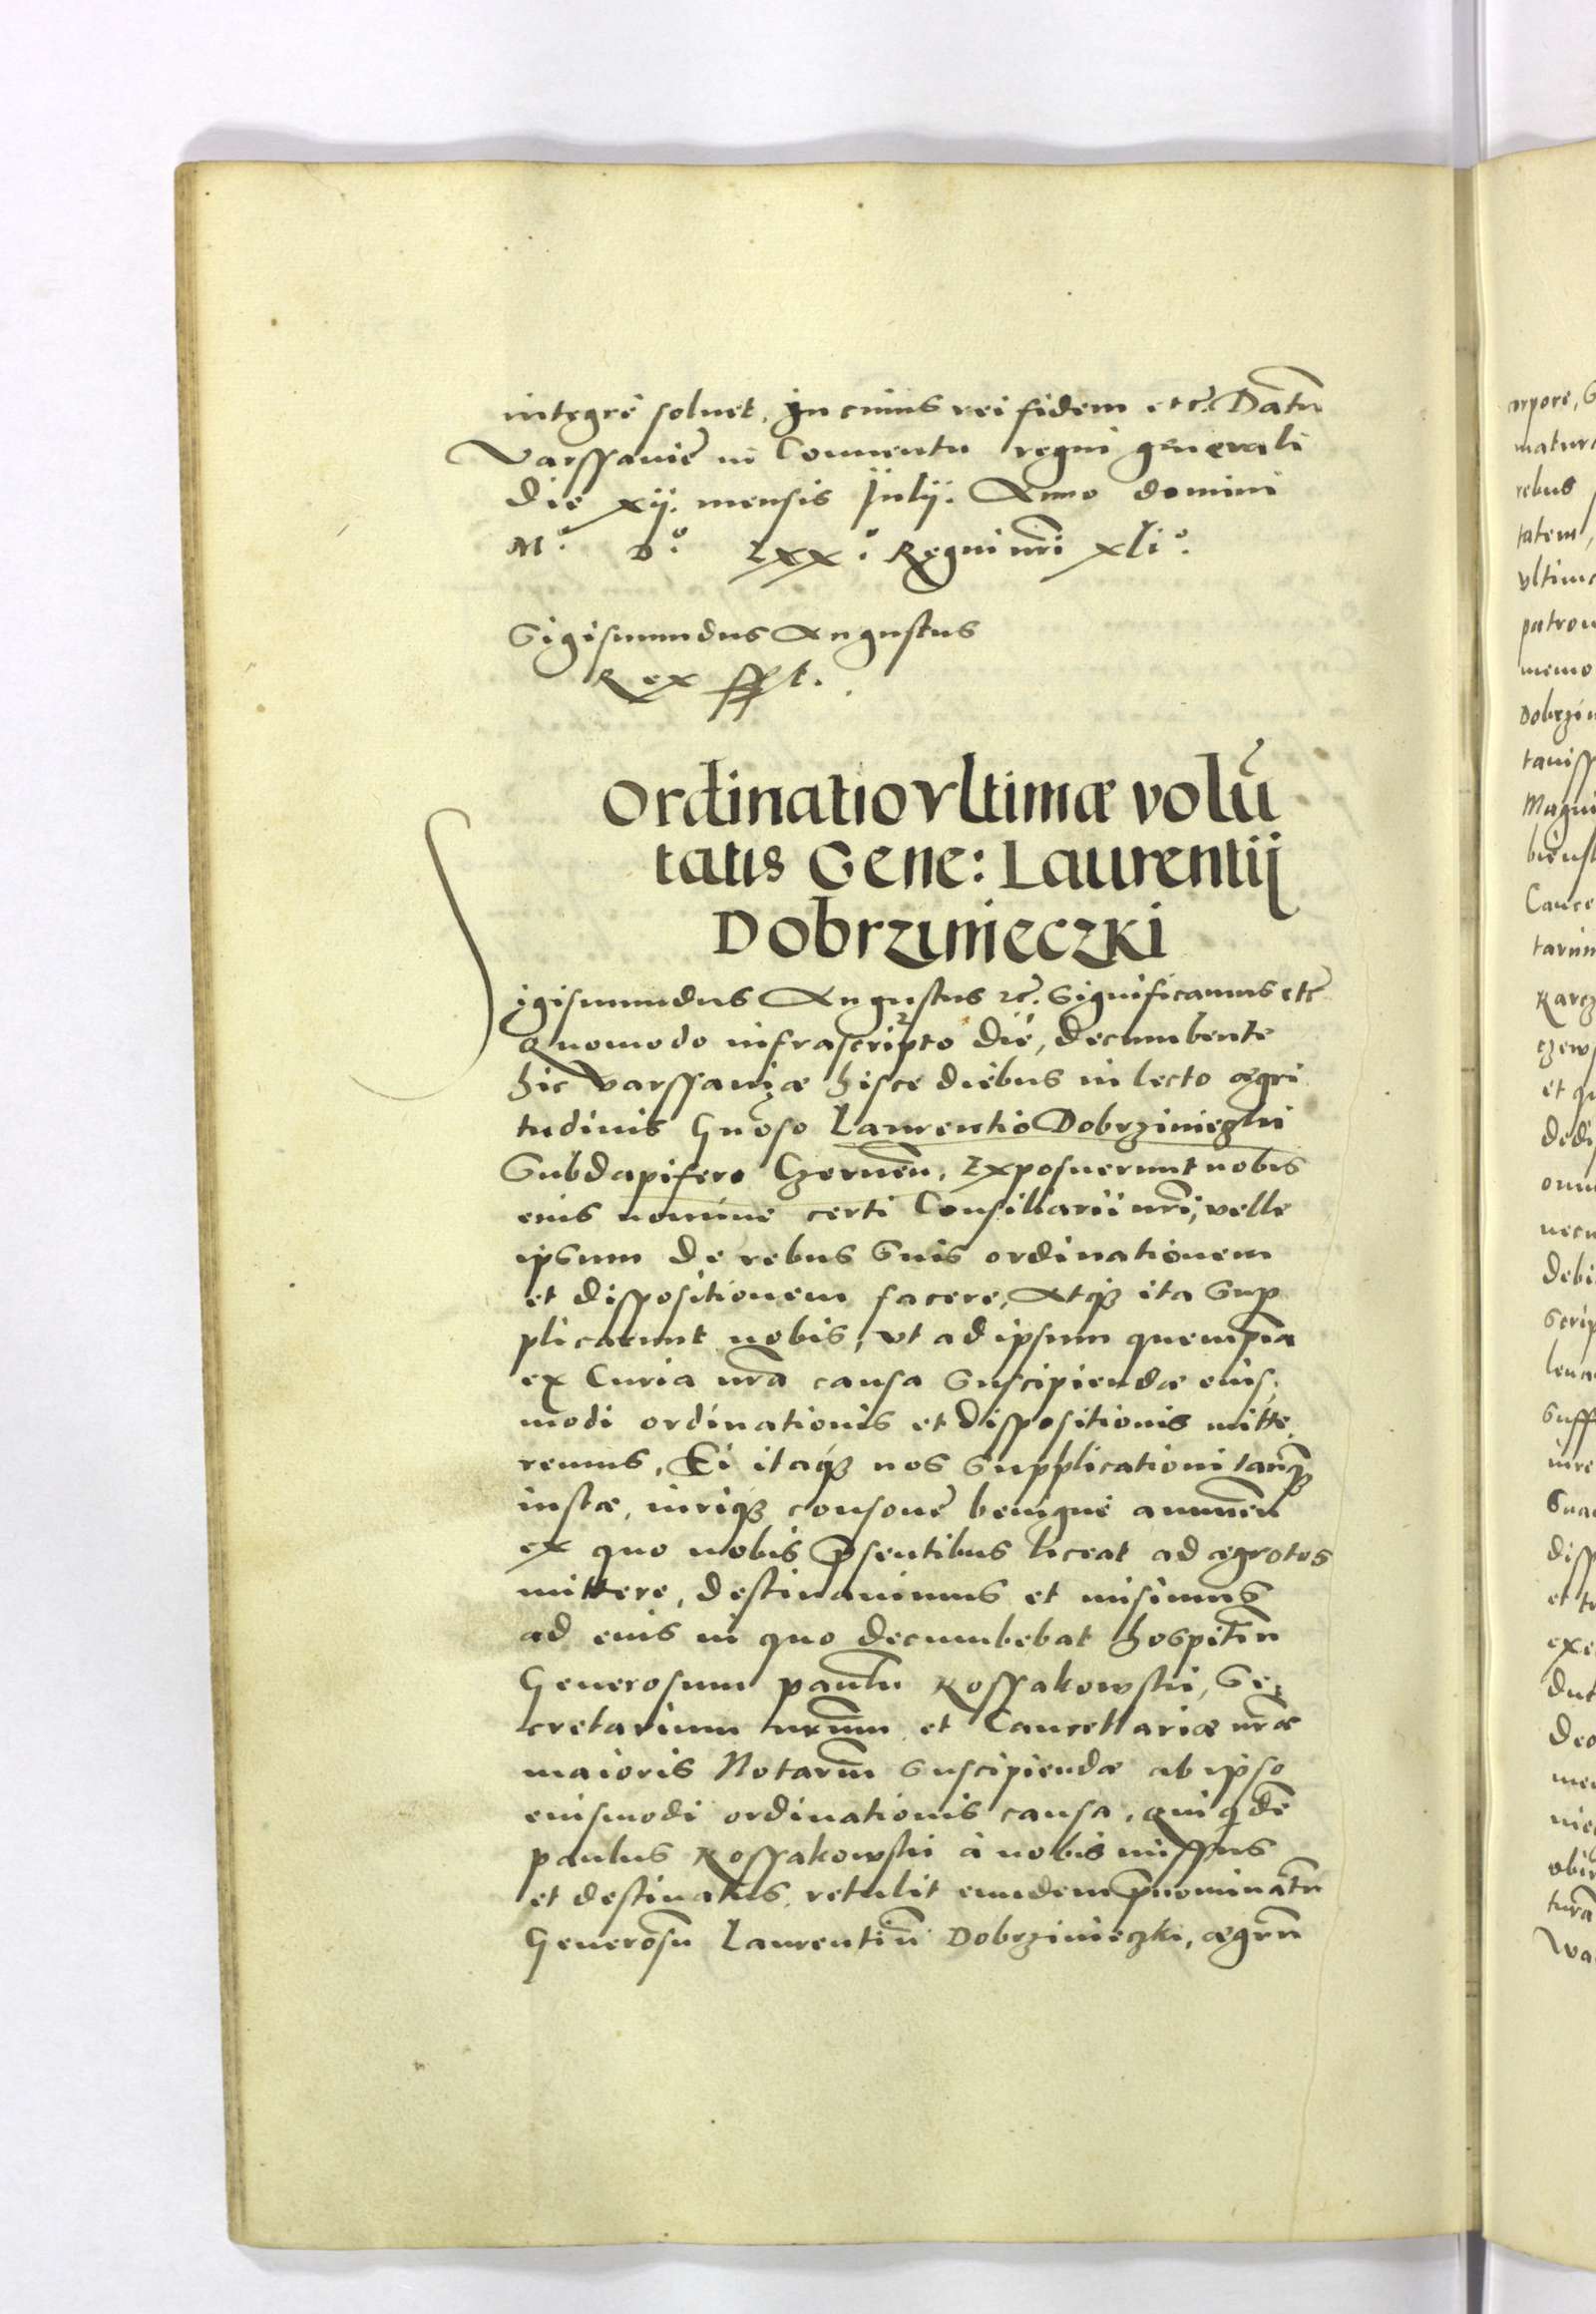 integre soluet. In cuius rei fidem etc. Datũ
Varssauie in Conuentu regni generali
die xij. mensis Julij. Anno domini
M.° D.° Lxx.° Regni nr̃i xli°.
Sigismundus Augustus
Rex sst.
Ordinatio vltimæ volũ
tatis Gene: Laurentij
Dobrziniecʒki
Sigismundus Augustus etc. Significamus etc
Quomodo infrascripto die, decumbente
hic Varssauiæ hisce diebus in lecto ægri
tudinis Gnoso Laurentio Dobrziniezki
Subdapifero Czernen̄. Exposuerunt nobis
eius nomine certi Consiliarii nr̃i, velle
ipsum de rebus suis ordinationem
et dispositionem facere, Atqʒ ita sup
plicarunt nobis, vt ad ipsum quempiã
ex Curia nr̃a causa suscipiendæ eius
modi ordinationis et dispositionis mitte
remus. Ei itaqʒ nos supplicationi tanqʒ
iustæ, iuriqʒ consone benigne annuen̄
ex quo nobis p̃sentibus liceat ad ægrotos
mittere, destinauimus et misimus
ad eius in quo decumbebat hospitiũ
Generosum Paulũ Kossakowski, Se
cretarium nrũm et Cancellariæ nr̃æ
maioris Notariũ suscipiendæ ab ipso
eiusmodi ordinationis causa. Qui qdẽ
Paulus Kossakowski à nobis missus
et destinatus, retulit eundem p̃nominatũ
Generosũ Laurentiũ Dobrziniecʒki, ægrũ
arpore,
rebus
tatem,
patron
memo
Magni
et qu
Debi